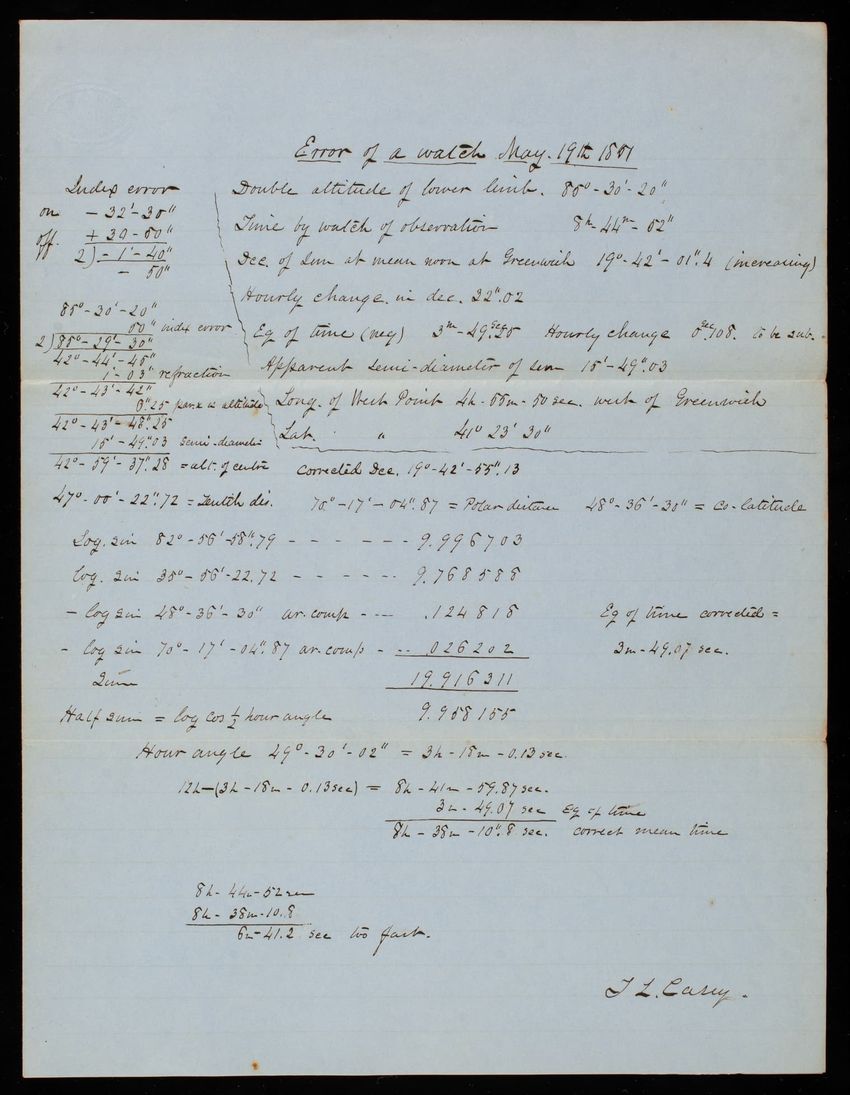 Error of a watch May. 19th 1851
Index error
on - 32'-30"
off. + 30-50"
2)- 1'-40"
- 50"
Double altitude of lower limb. 85°-30'-20"
Time by watch of observation 8h-44m-52"
Dec. of sun at mean noon at Greenwich 19°-42'-01".4 (increasing)
Hourly change in dec. 32".02
Eq of time (neg) 3m-49.sec25 Hourly change 0sec.108. to be sub.
Apparent semi-diameter of sun 15'-49".03
Long. of West Point 4h-55m-50sec. west of Greenwich
Lat. " 41° 23' 30"
85°-30'-20"
50" index error
2)85°-29'-30"
42°-44'-45"
1'-03" refraction
42°-43'-42"
6".25 parx in altitude
42°-43'-48".25
15'-49".03 semi-diameter
42°-59'-37".28 = alt. of centre
corrected Dec. 19°-42'-55".13
47°-00'-22".72 = Zenith dis. 70°-17'-04".87 = Polar distance 48°-36'-30" = co-latitude
Log. sin 82°-56'-58".79 - - - - - - - 9.996703
log. sin 35°-56'-22.72 - - - - - - 9.768588
- log sin 48°-36'-30" ar. comp - - - .124818
- log sin 70°-17'-04".87 ar. comp - - - .026202
Sum 19.916311
Half sum = log cos ½ hour angle 9.958155
Eq of time corrected =
3m-49.07 sec.
Hour angle 49°-30'-02" = 3h-18m-0.13sec.
12h-(3h-18m-0.13sec) = 8h-41m-59.87sec.
3m-49.07 sec Eq of time
8h-38m-10".8 sec. correct mean time
8h-44m-52sec
8h-38m-10.8
6m-41.2 sec too fast.
T L. Casey.